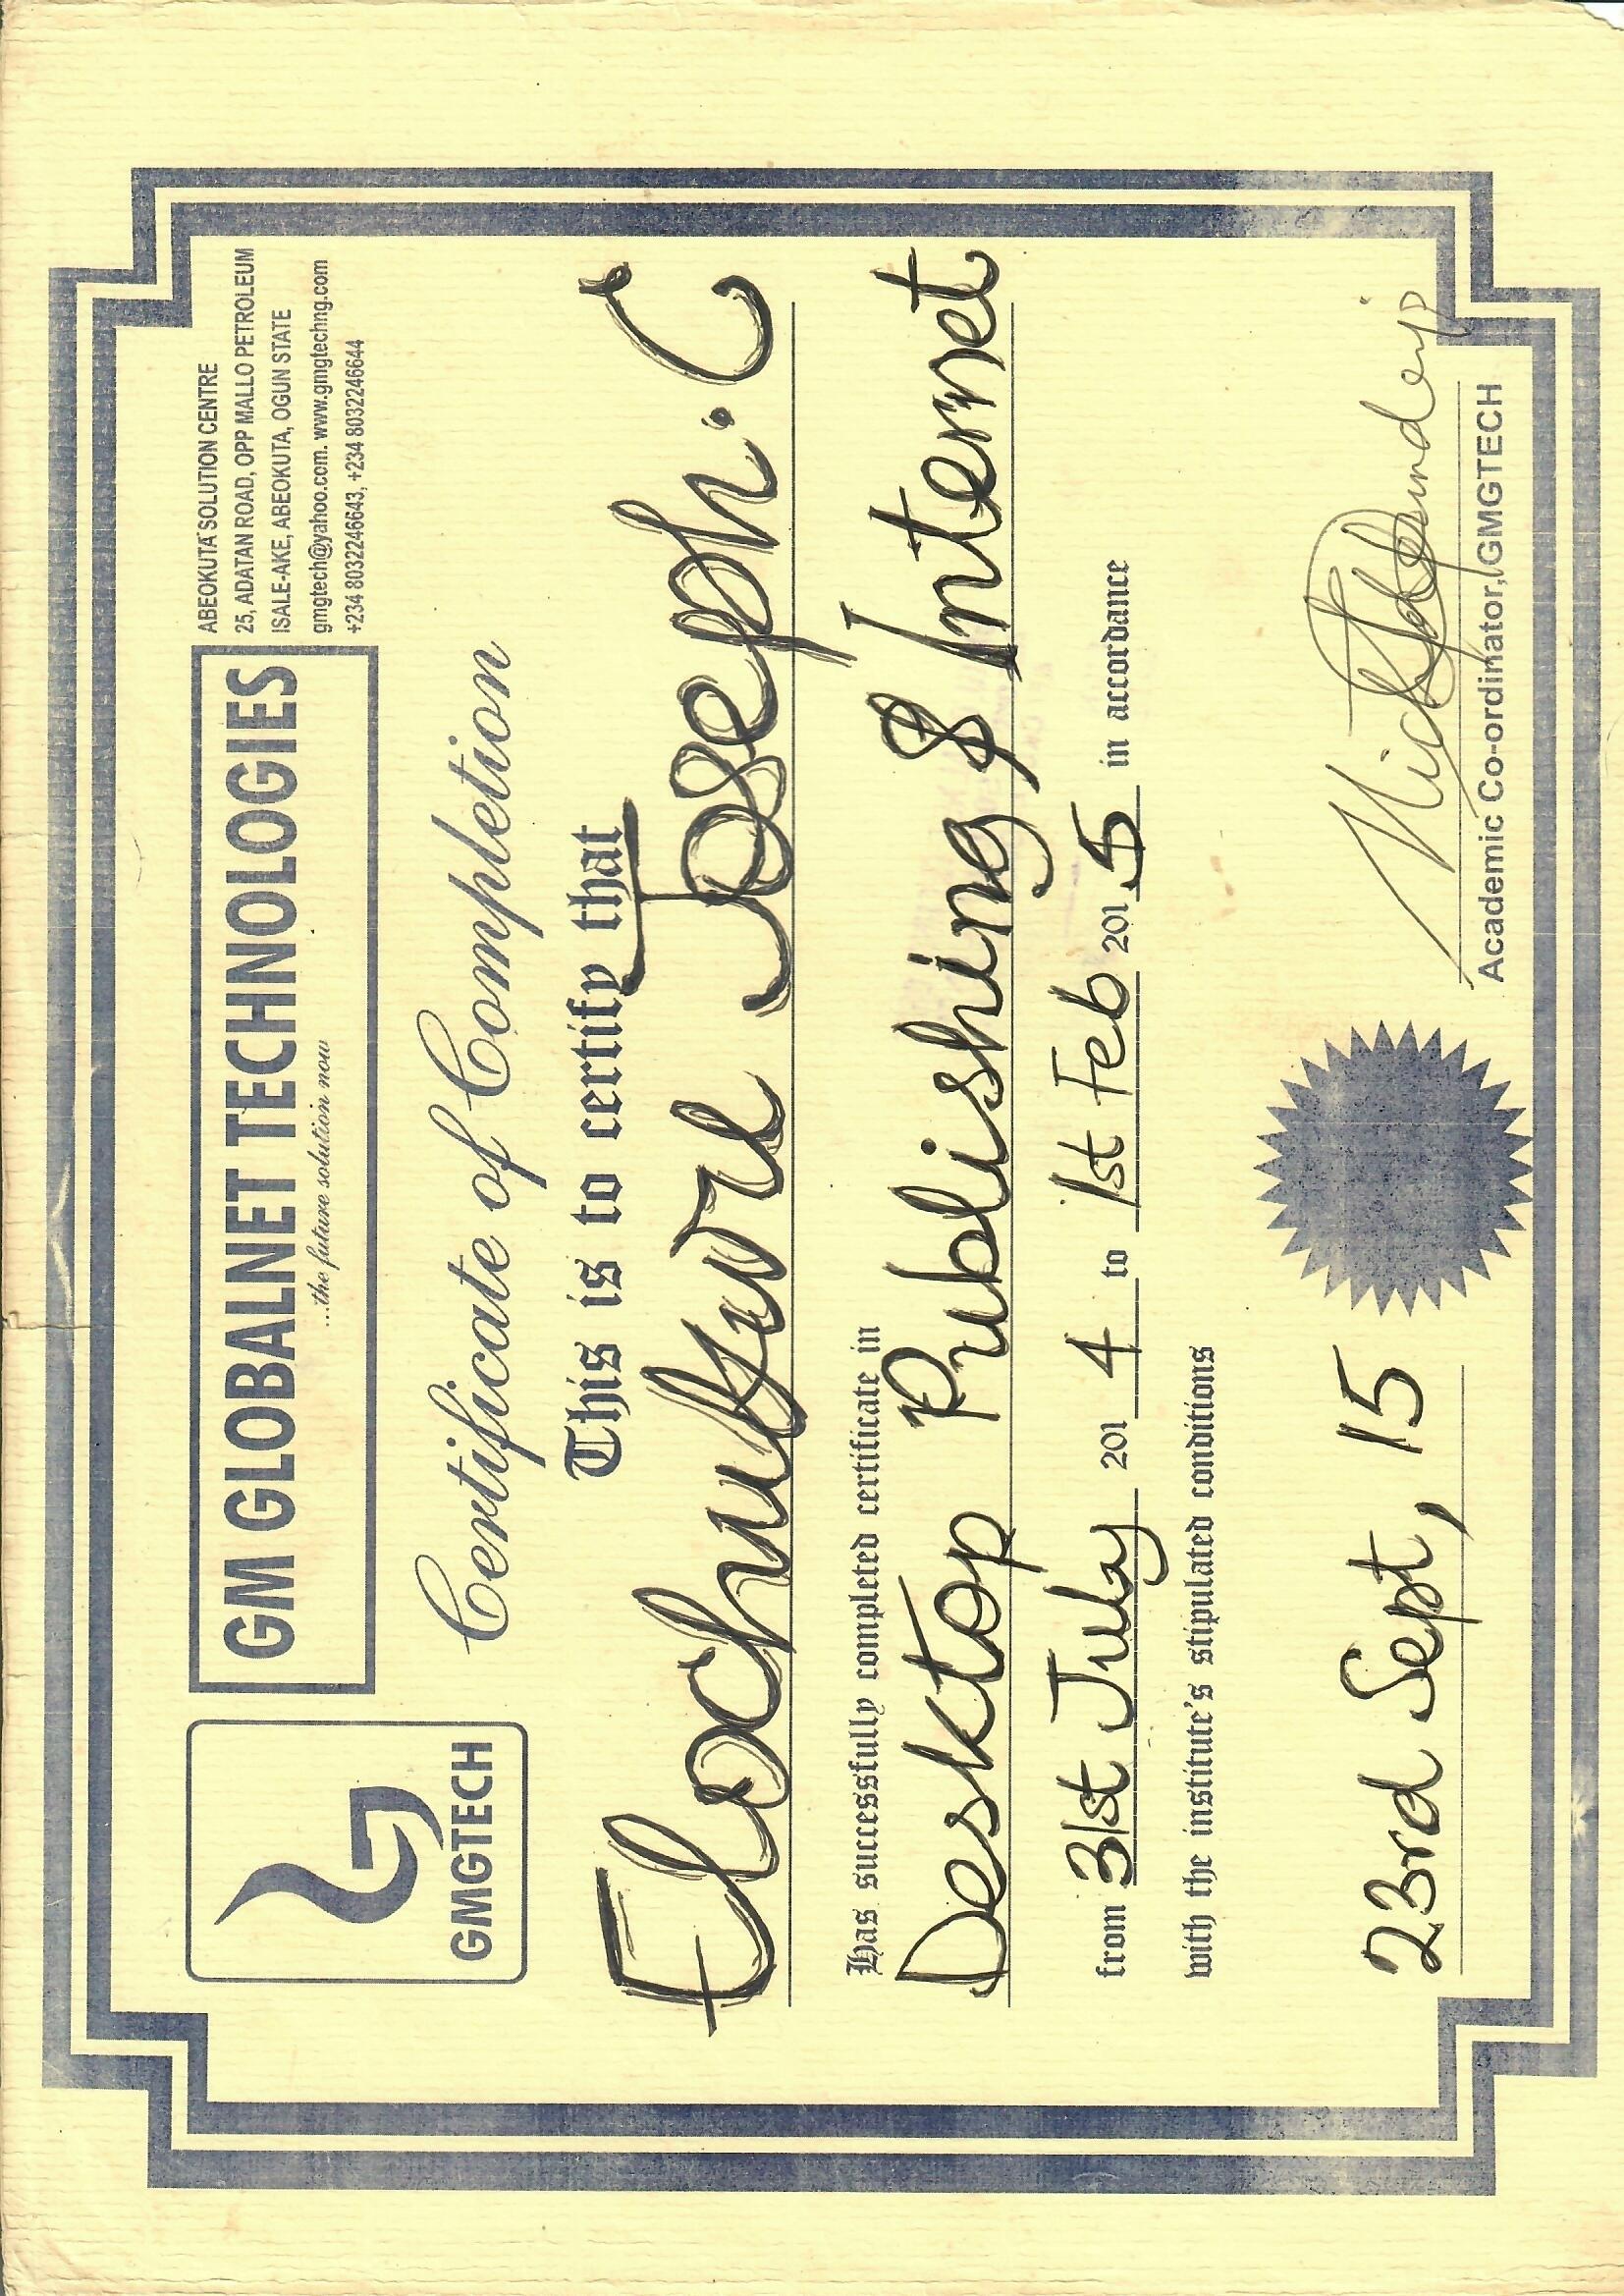 GMGTECH
GM GLOBALNET TECHNOLOGIES
...the future solution now
ABEOKUTA SOLUTION CENTRE
25, ADATAN ROAD, OPP MALLO PETROLEUM
ISALE-AKE, ABEOKUTA, OGUN STATE
gmgtech@yahoo.com. www.gmgtechng.com
+234 8032246643, +234 8032246644
Certificate of Completion
This is to certify that
Elochukwu Joseph. C
Has successfully completed certificate in
Desktop Publishing & Internet
from 31st July 2014 to 1st Feb 2015 in accordance
with the institute's stipulated conditions
23rd Sept, 15
Academic Co-ordinator, GMGTECH